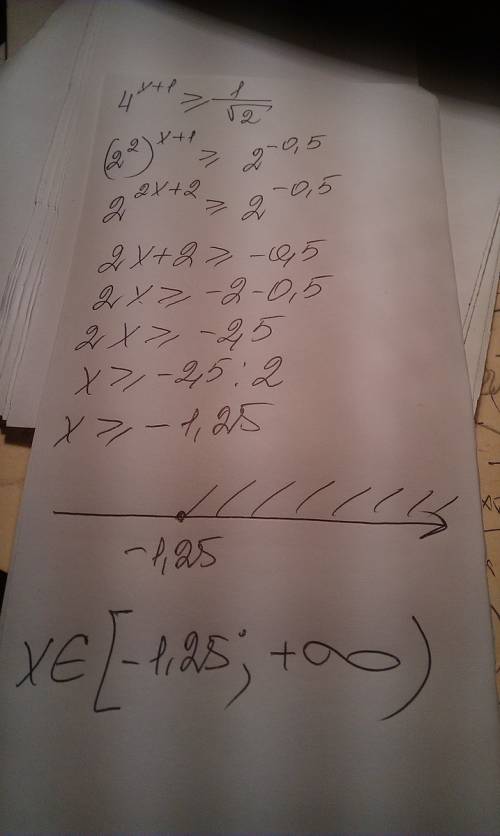 4^{x+1} ≥ 1/√2
(2^2)^{x+1} ≥ 2^{-0,5}
2^{2x+2} ≥ 2^{-0,5}
2x+2 ≥ -0,5
2x ≥ -2-0,5
2x ≥ -2,5
x ≥ -2,5 : 2
x ≥ -1,25
-1,25
x∈[-1,25; +∞)